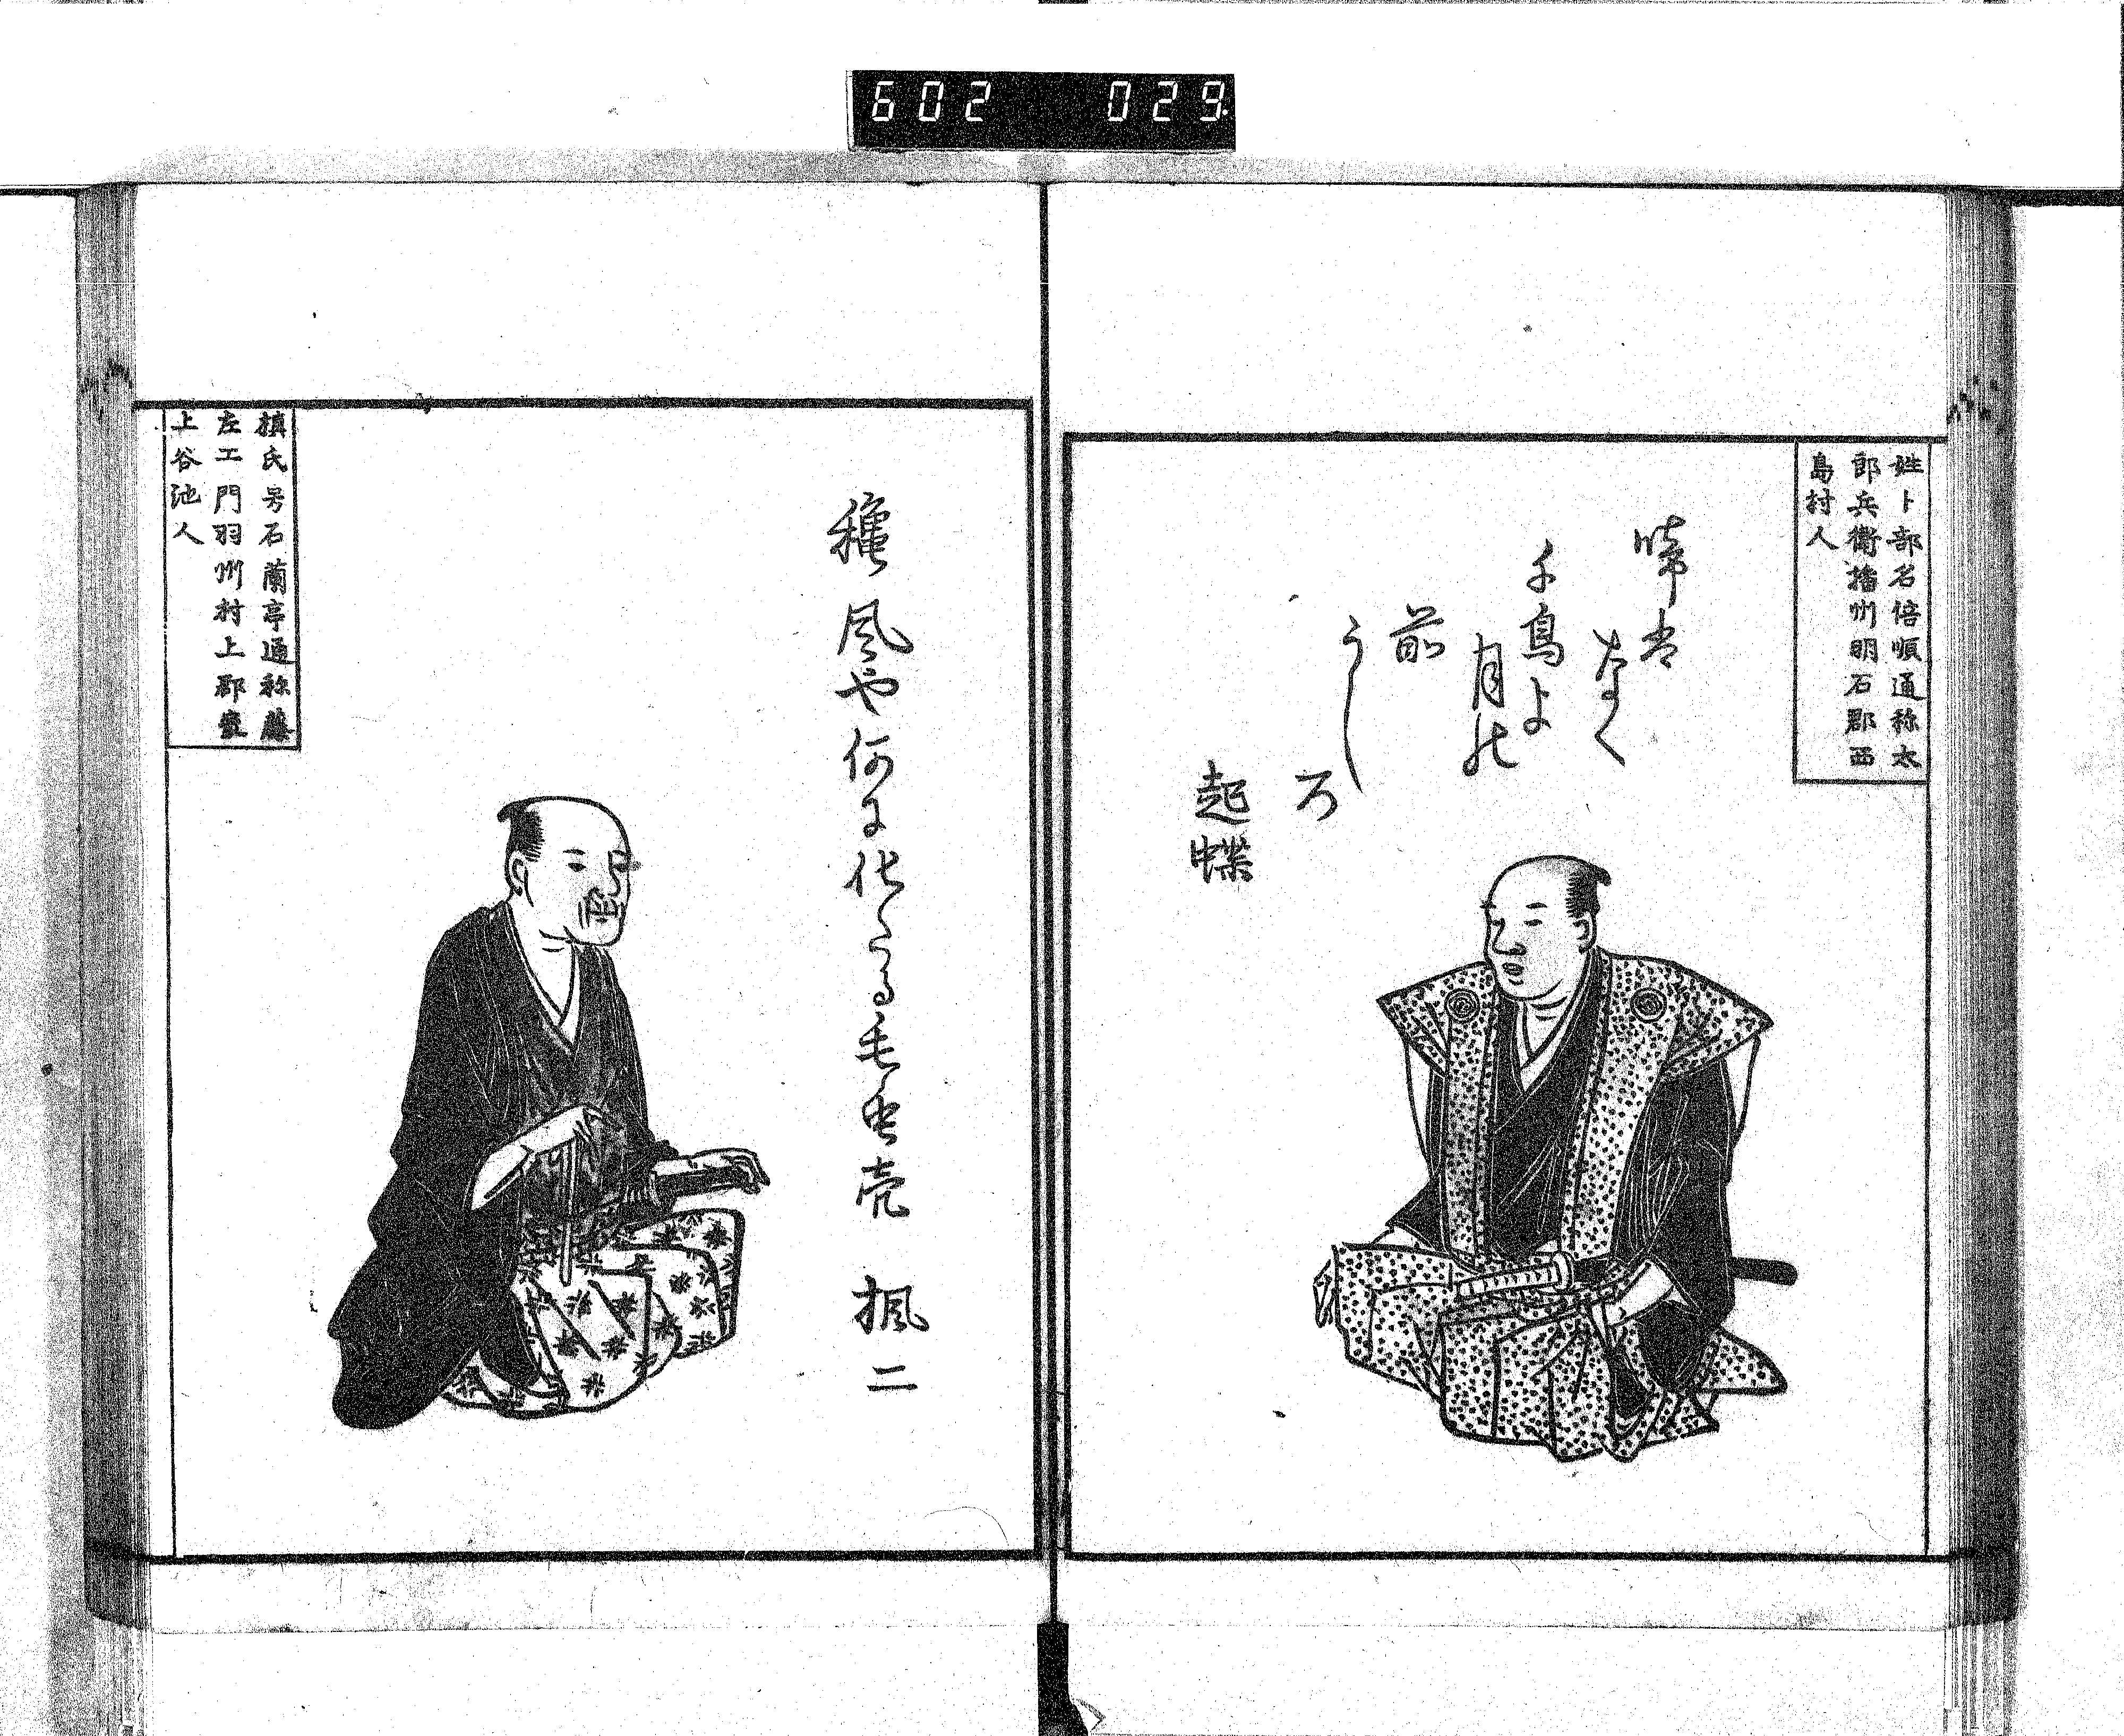 602 029
姓卜部名倍順通称太
郎兵衛播州明石郡西
島村人
啼
なく
千鳥よ
月の
前
うし
ろ
起蝶
槙氏号石蘭亭通称藤
左工門羽州村上郡
上谷池人
龝風や何に化たる毛虫売
楓二